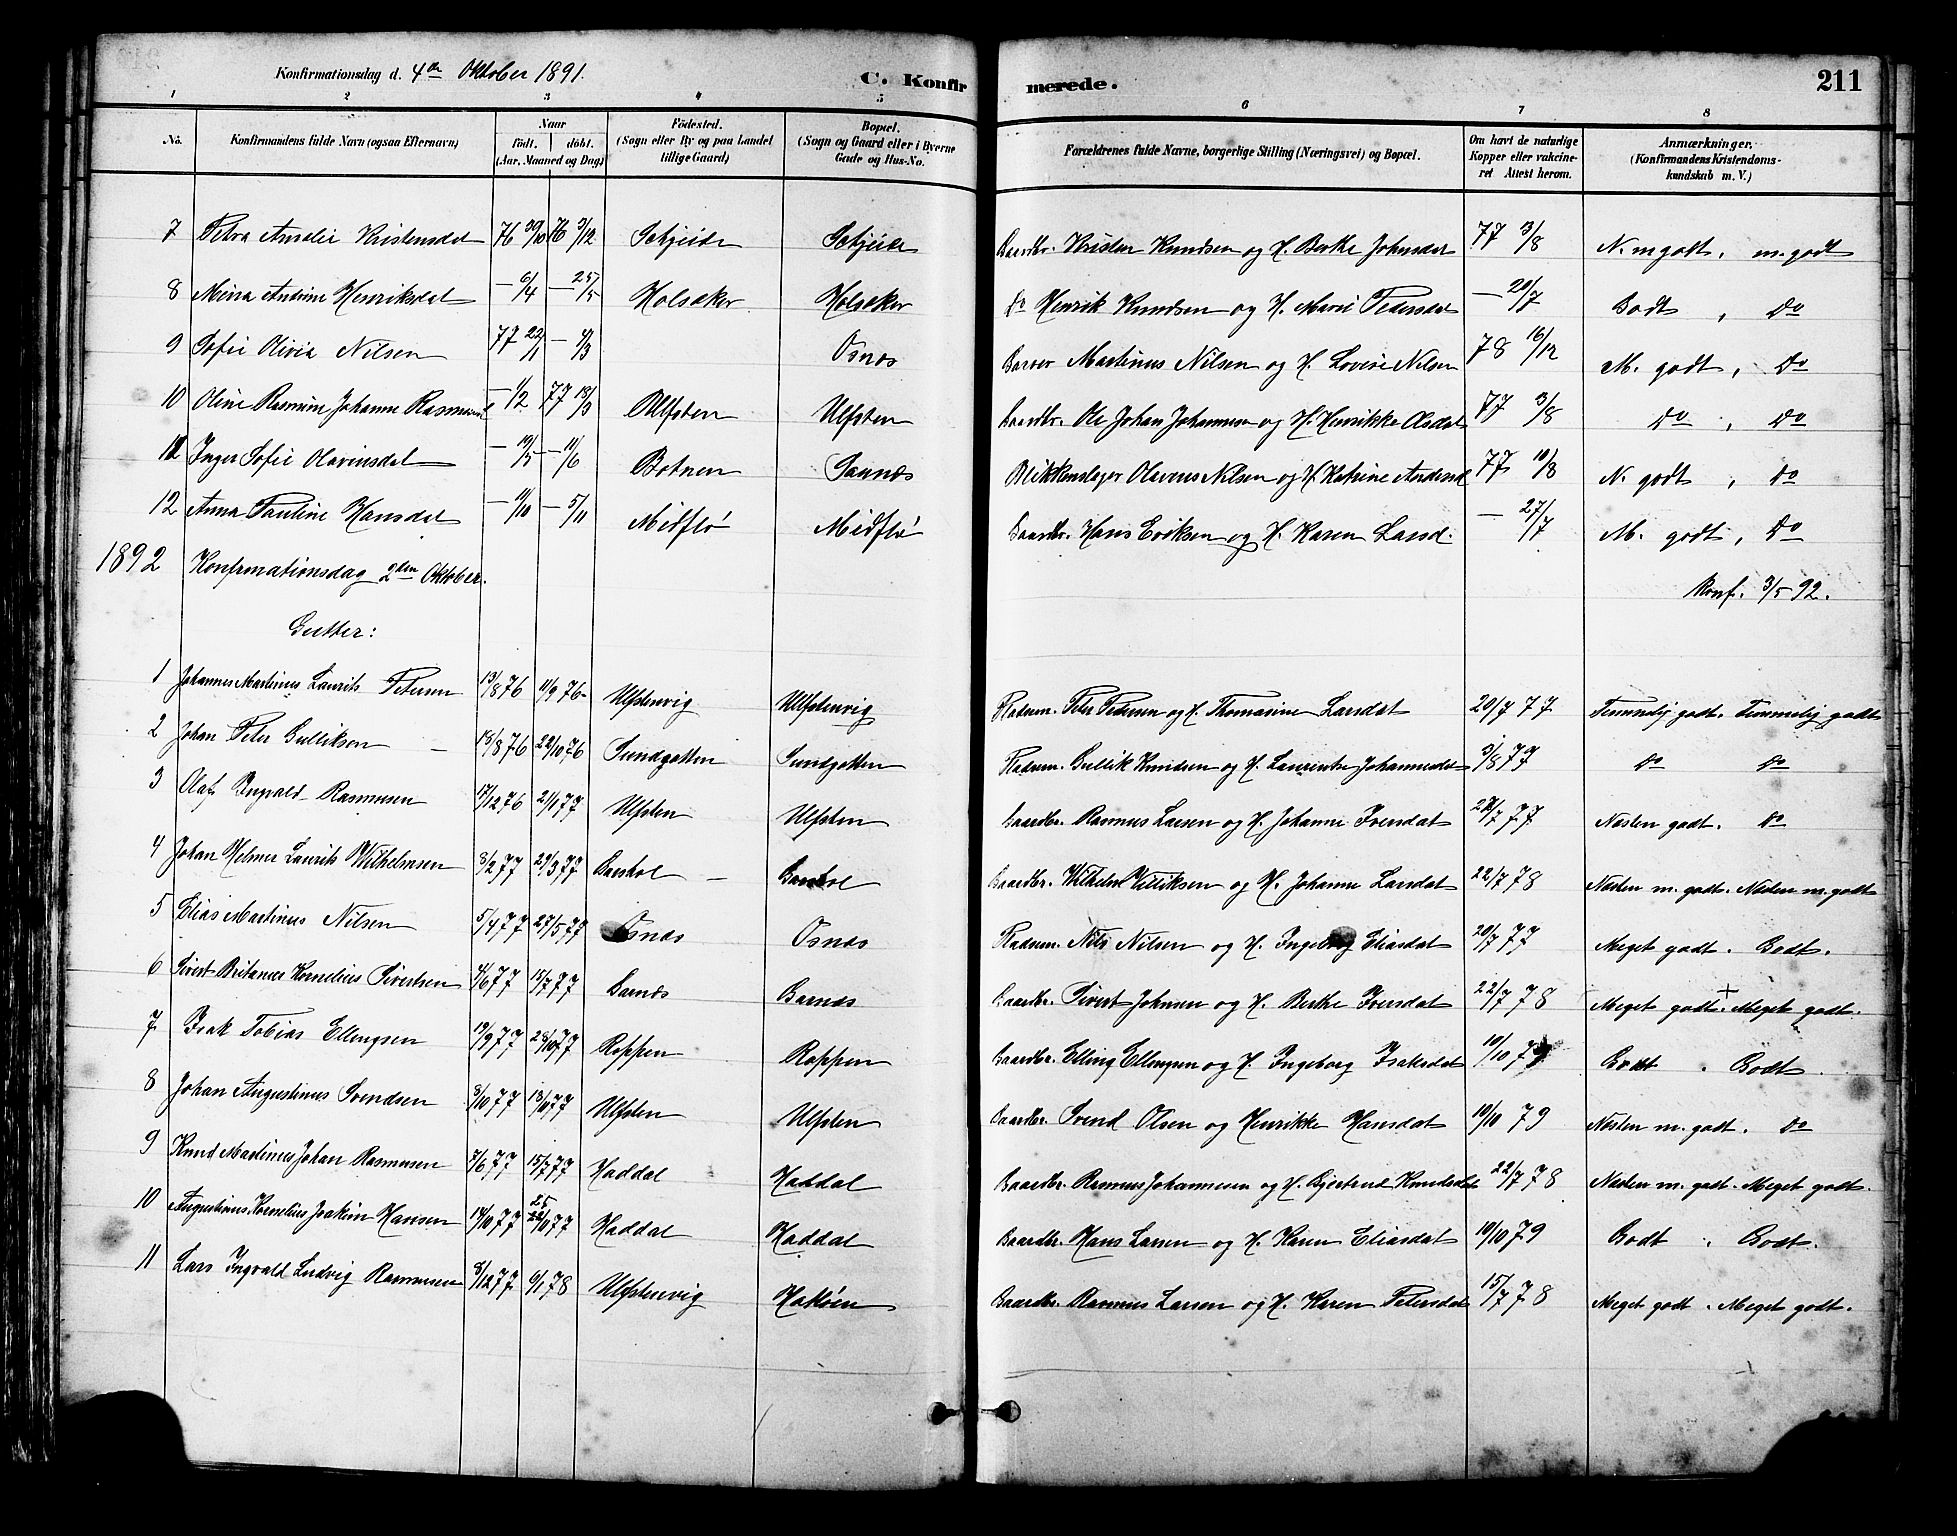 Konfirmationsdag d. 4de Oktober 1891.
C. Konfirmerede.
211
1 2 3 4 5 6 7 8
No. Konfirmandens fulde Navn (ogsaa Efternavn) Naar födt. döbt. (Aar, Maaned og Dag) Födested. (Sogn eller By og paa Landet tillige Gaard) Bopæl. (Sogn og Gaard eller i Byerne Gade og Hus-No. Forældrenes fulde Navne, borgerlige Stilling (Næringsvei) og Bopæl. Om havt de naturlige Kopper eller vakcineret Attest herom. Anmærkninger. (Konfirmandens Kristendomskundskab m. V.)
7 Petra Amalie Kristensdat 76 30/10 76 3/12 Sætjeide Gaardbr. Kristen Knudsen og H. Berthe Johnsdat 77 3/8 N. m godt, m. godt
8 Mina Andrine Henriksdat — 6/4 — 25/5 Holsæker Holsæker Do Henrik Knudsen og H. Marie Pedersdat — 20/7 Godt, Do
9 Sofie Olivia Nilsen 77 22/1 — 4/3 Osnæs Martinus Nilsen og H. Lovise Nilsen 78 16/12 M. godt, Do
10 Oline Rasmine Johanne — 1/2 77 18/3 Ulfsten Ulfsten Gaardbr. Ole Johan Johannesen og H. Henrikke Olsdat 77 3/8 Do, Do
11 Inger Sofie Olavinsdat — 19/5 — 11/6 Botnen Saunæs Blikkenslager Olavus Nilsen og H. Katrine 77 10/8 N. godt, Do
12 Anna Pauline Hansdat — 11/10 — 5/11 Midflø Midflø Gaardbr. Hans Eriksen og H. Karen Larsd. — 27/7 M. godt, Do
1892 Konfirmationsdag 2den Oktober.
Konf. 3/5 92.
Gutter:
1 Johannes Martinus Laurits Petersen 13/8 76 11/9 76 Ulfstenvig Ulfstenvig Pladsm. Peter Pedersen og H. Thomasine Larsdat 20/7 77 Temmelig godt. Temmelig godt
2 Johan Peter Gulliksen — 18/8 76 22/10 76 Sundgotten Sundgotten Pladsm. Gullik Knudsen og H. Laurintse Johannesdat 3/8 77 Do Do
3 Olaf Ingvald Rasmusen 17/12 76 2/1 77 Ulfsten Ulfsten Gaardbr. Rasmus Larsen og H. Johanne Iversdat 77 Næsten godt. Do
4 Johan Helmer Laurits Wilhelmsen 8/2 77 29/3 77 Garshol — Garshol Gaardbr. Wilhelm Williksen og H. Johanne Larsdat 22/7 78 Næsten m. godt. Næsten m. godt
5 Elias Martinus Nilsen 5/4 77 27/5 77 Osnæs Osnæs Pladsm. Nils Nilsen og H. Ingeborg Eliasdat 20/7 77 Meget godt. Godt.
6 Sivert Britanus Kornelius Sivertsen 4/6 77 15/7 77 Garnæs Garnæs Gaardbr. Sivert Johnsen og H. Berthe Iversdat 22/7 78 Meget godt. + Meget godt.
7 Isak Tobias Ellingsen 19/9 77 28/10 77 Roppen Roppen Gaardbr. Elling Ellingsen og H. Ingeborg Isaksdat 10/10 Godt. Godt.
8 Johan Augustinus Svendsen 8/10 77 13/10 77 Ulfsten Ulfsten Gaardbr. Svend Olsen og Henrikke Hansdat 10/10 79 Næsten m. godt. Do
9 Knud Martinus Johan Rasmusen 7/6 77 15/7 77 Haddal Haddal Gaardbr. Rasmus Johannesen og H. Gjertrud Knudsdat 22/7 78 Næsten m. godt. Meget godt.
10 Augustinus Kornelius Joakim Hansen 14/10 77 25/10 77 Haddal Haddal Gaardbr. Hans Larsen og H. Karen Eliasdat 10/10 79 Godt. Godt.
11 Lars Ingvald Ludvig Rasmusen 8/12 77 6/1 78 Ulfstenvig Gaardbr. Rasmus Larsen og H. Karen Petersdat 15/7 78 Meget godt. Meget godt.